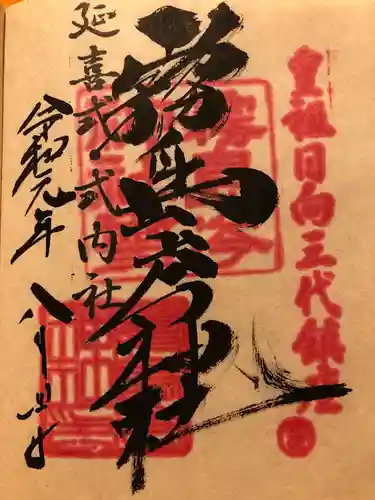 皇祖日向三代鎮座
霧島岑神社
延喜式・式内社
令和元年
八月